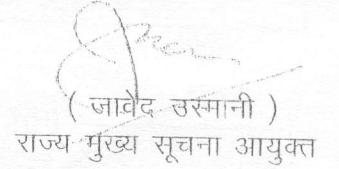 ( जावेद उस्मानी )
राज्य मुख्य सूचना आयुक्त